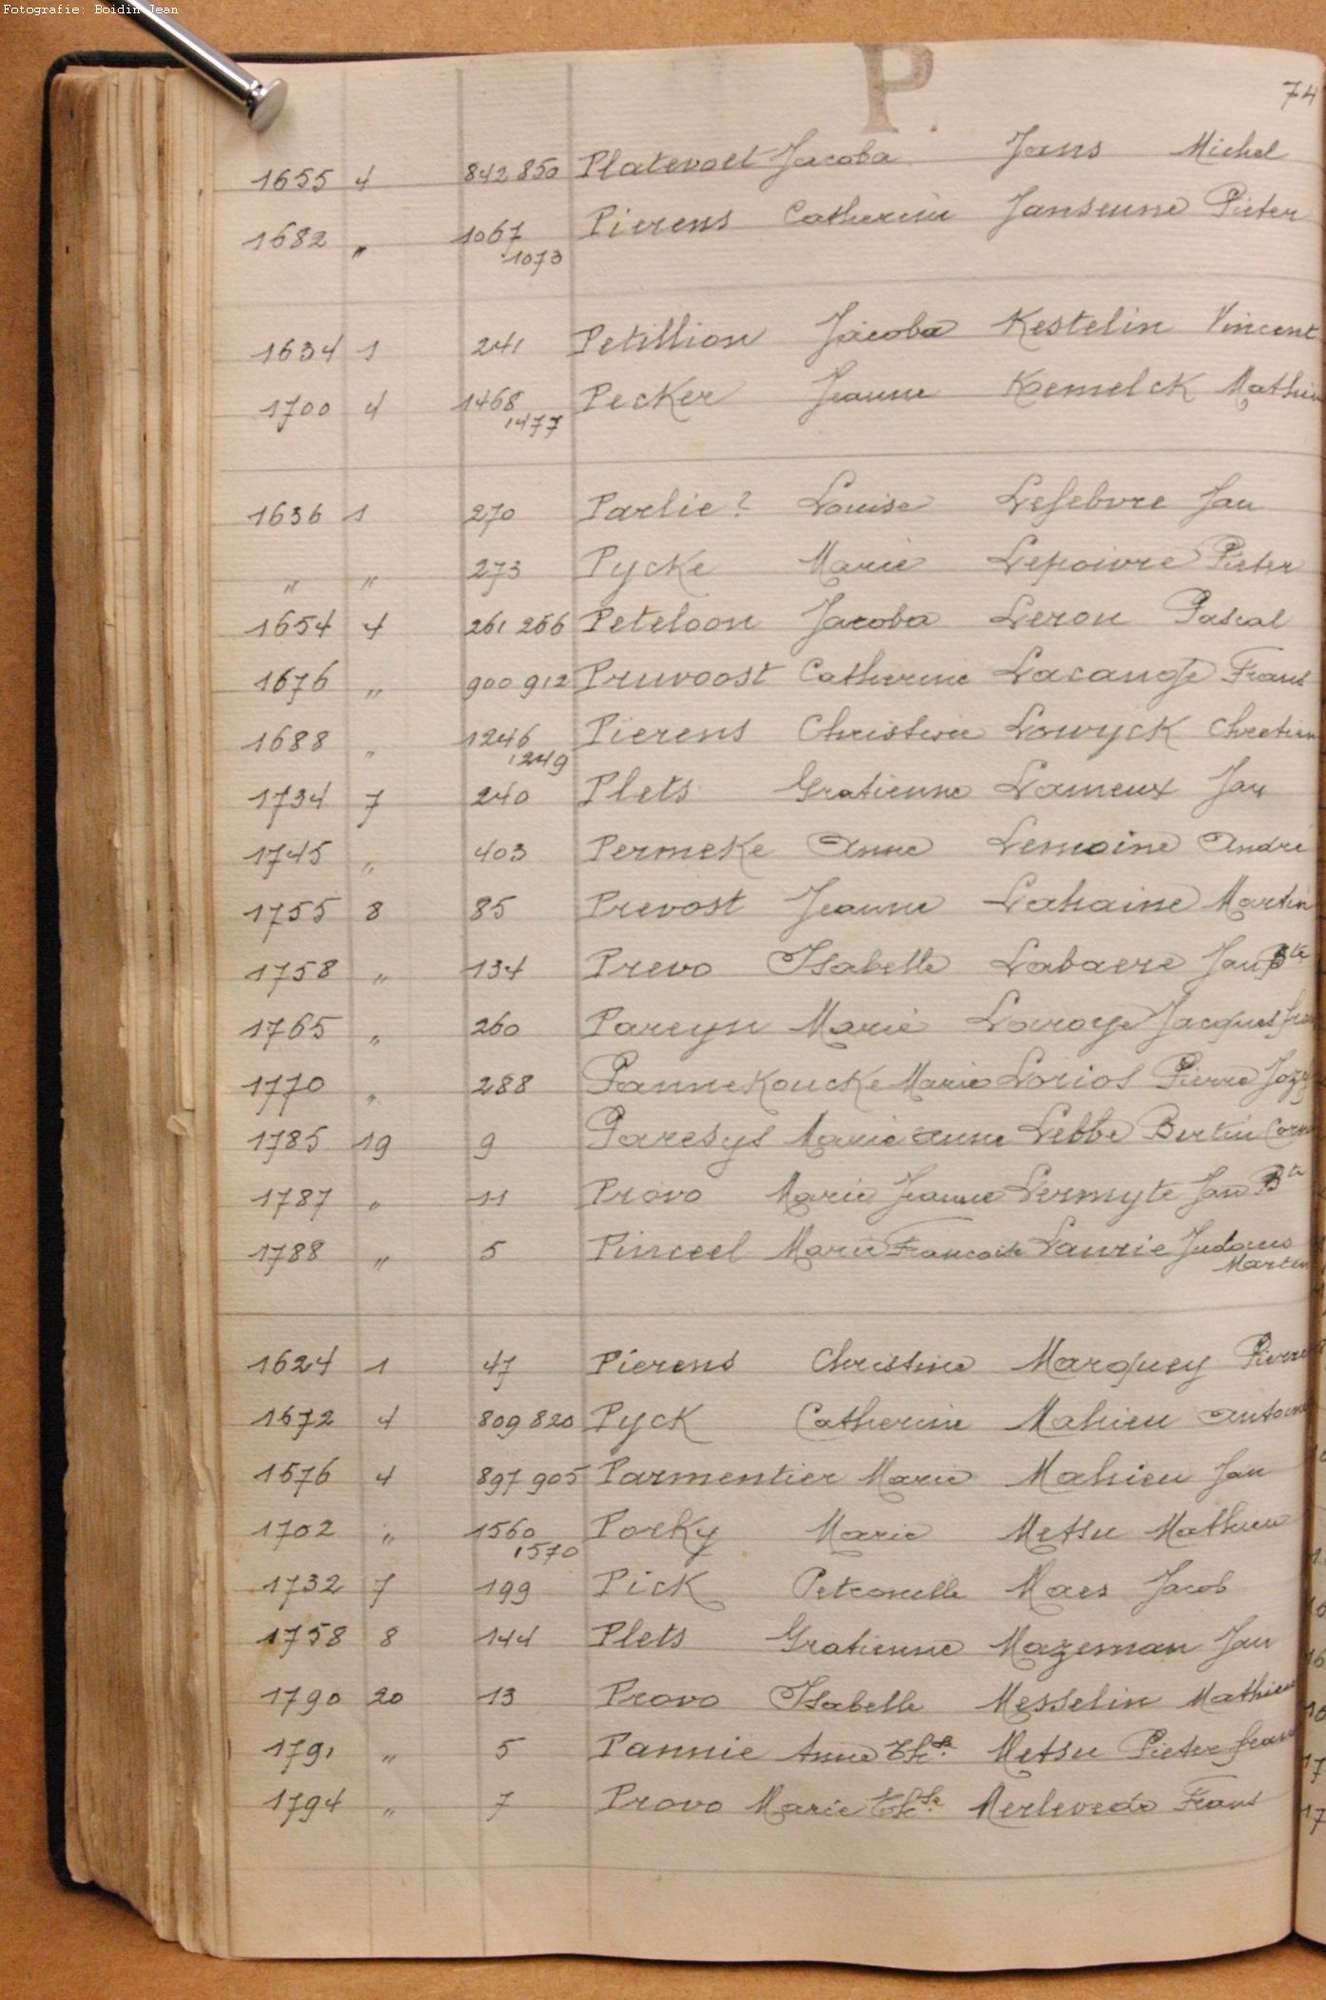 Fotografie: Boidin Jean
P.
74
1655 4 842 850 Platevoet Jacoba Jans Michel
1682 " 1067 Pierens Catherine Janseune Pieter
1073
1634 1 241 Petillion Jacoba Kestelin Vincent
1700 4 1468 Pecker Jeanne Kemelck Mathieu
1477
1636 1 270 Parlie? Louise Lefebvre Jan
" " 273 Pycke Marie Lepoivre Pieter
1654 4 261 266 Peteloon Jacoba Leron Pascal
1676 " 900 912 Pruvoost Catherine Lacange Frans
1688 " 1246 Pierens Christine Lowyck Chretien
1249
1734 7 240 Plets Gratienne Lameux Jan
1745 " 403 Permeke Anne Lemoine André
1755 8 85 Prevost Jeanne Lahaine Martin
1758 " 134 Prevo Isabelle Labaere Jan Bte
1765 " 260 Pareyn Marie Laroye Jacques
1770 " 288 Pannekoucke Marie Loriol Pierre
1785 19 9 Paresys Marie Anne Lebbe Bertin
1787 " 11 Provo Marie Jeanne Lermyte Jan Bte
1788 " 5 Pinceel Marie Francoise Laurie Judocus
Martin
1624 1 47 Pierens Christine Marquey Pierre
1672 4 809 820 Pyck Catherine Mahieu Antoine
1676 4 897 905 Parmentier Marie Mahieu Jan
1702 " 1560 Porky Marie Metsu Mathieu
1570
1732 7 199 Pick Petronelle Maes Jacob
1758 8 144 Plets Gratienne Mazeman Jan
1790 20 13 Provo Isabelle Messelin Mathieu
1791 " 5 Pannie Anne Thse Metsu Pieter
1794 " 7 Provo Marie Thse Merlevede Frans